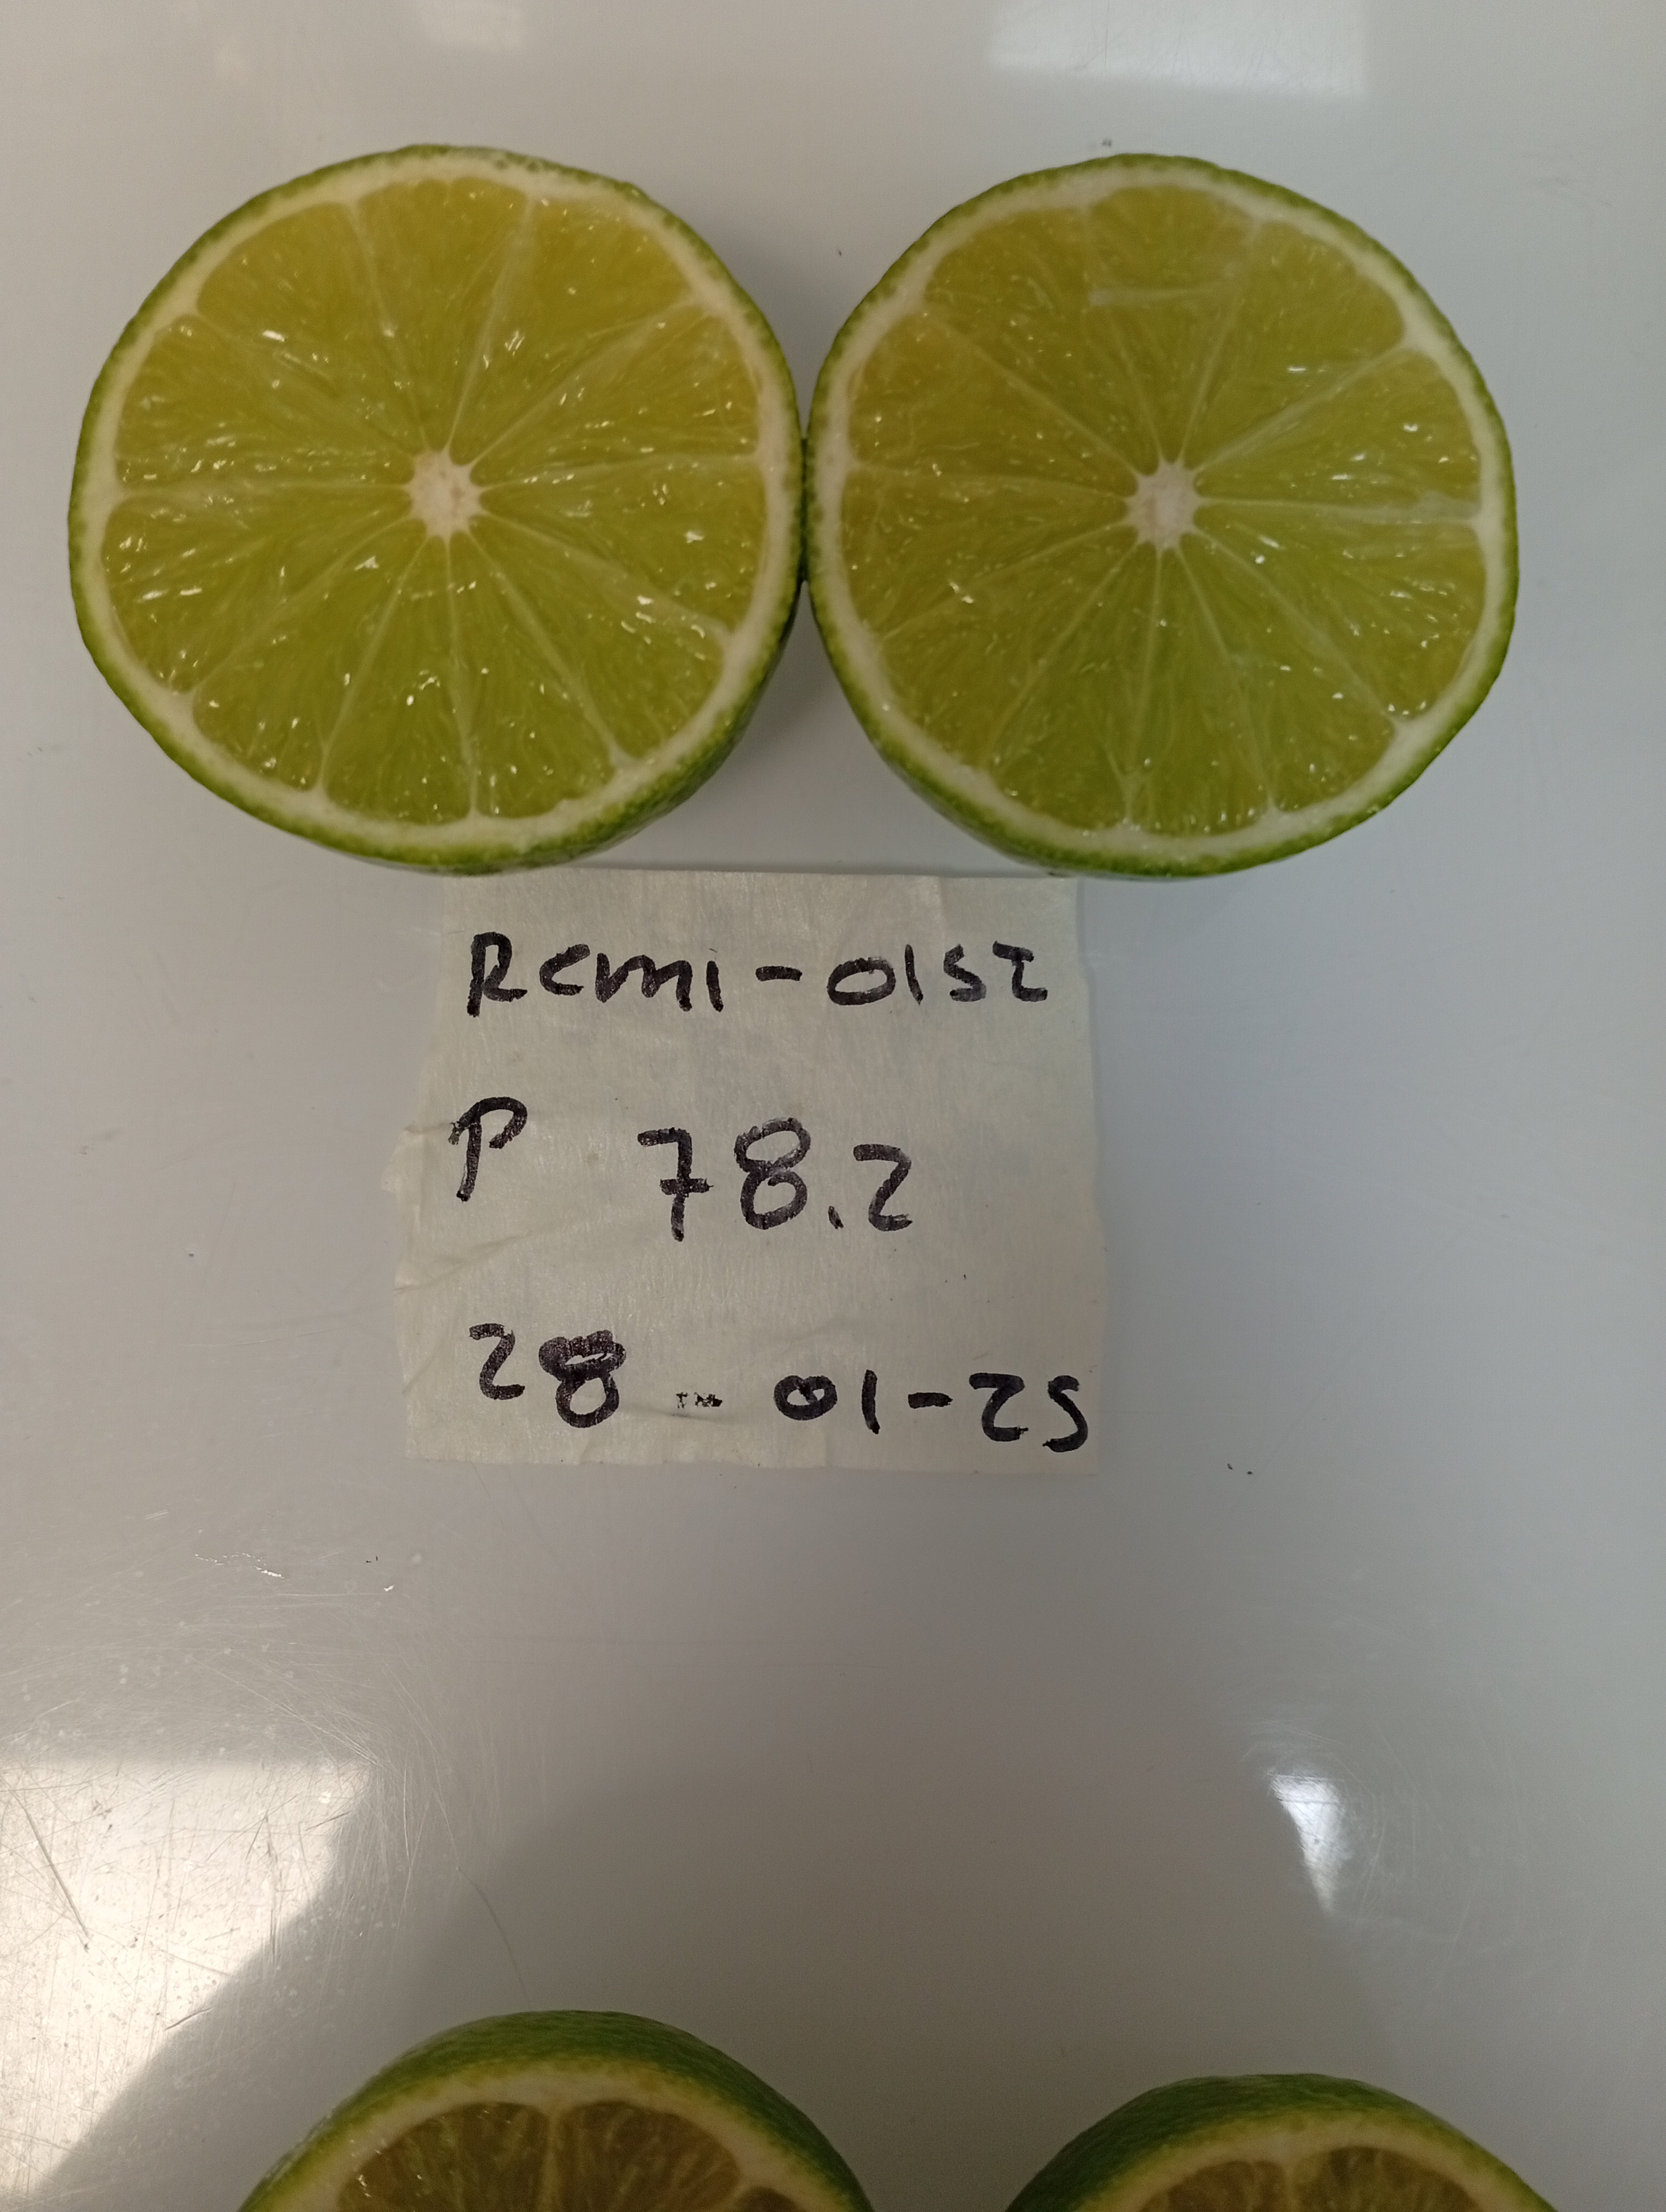 Remi-0152
P 78.2
28-01-25